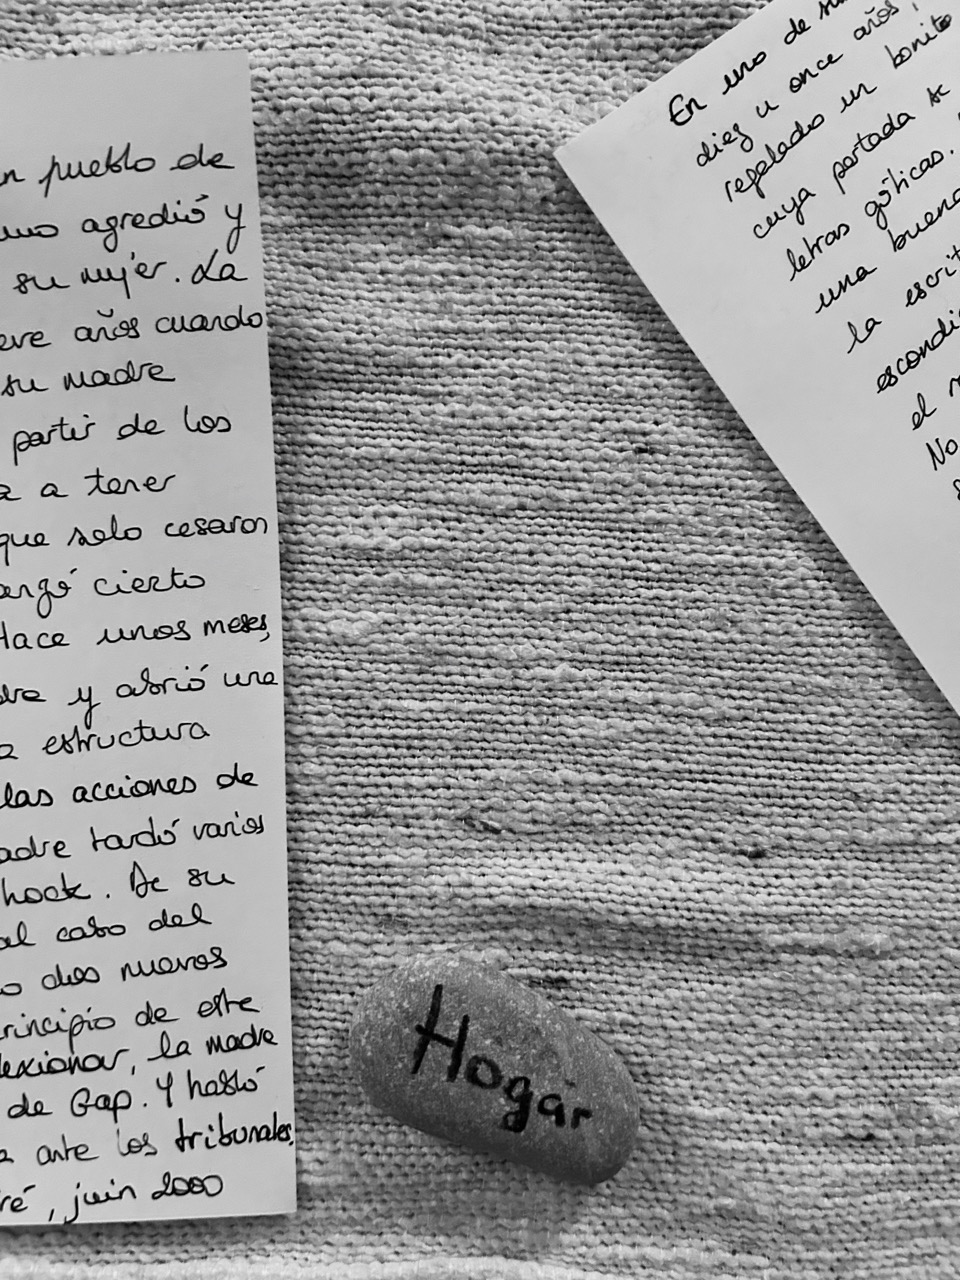 pueblo de
agredió y
su mujer. La
años cuando
su madre
partir de los
a tener
que solo cesaron
cierto
Hace unos meses,
y abrió una
estructura
las acciones de
tardó varios
hock. De su
al cabo del
dos nuevos
principio de este
lexionar, la madre
de Gap. Y habló
ante los tribunales,
ré, juin 2000
En uno de
diez u once años,
regalado un bonito
cuya portada se
letras góticas.
una buena
la escrit
escondi
el
No
Hogar